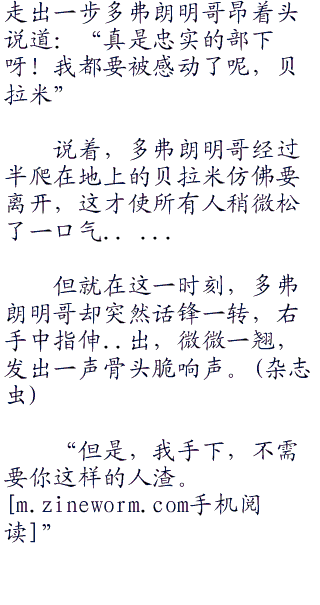 走出一步多弗朗明哥昂着头
说道：“真是忠实的部下
呀！我都要被感动了呢，贝
拉米”
说着，多弗朗明哥经过
半爬在地上的贝拉米仿佛要
离开，这才使所有人稍微松
了一口气．．．．．
但就在这一时刻，多弗
朗明哥却突然话锋一转，右
手中指伸．．出，微微一翘，
发出一声骨头脆响声。（杂志
虫）
“但是，我手下，不需
要你这样的人渣。
[m.zineworm.com手机阅
读]”